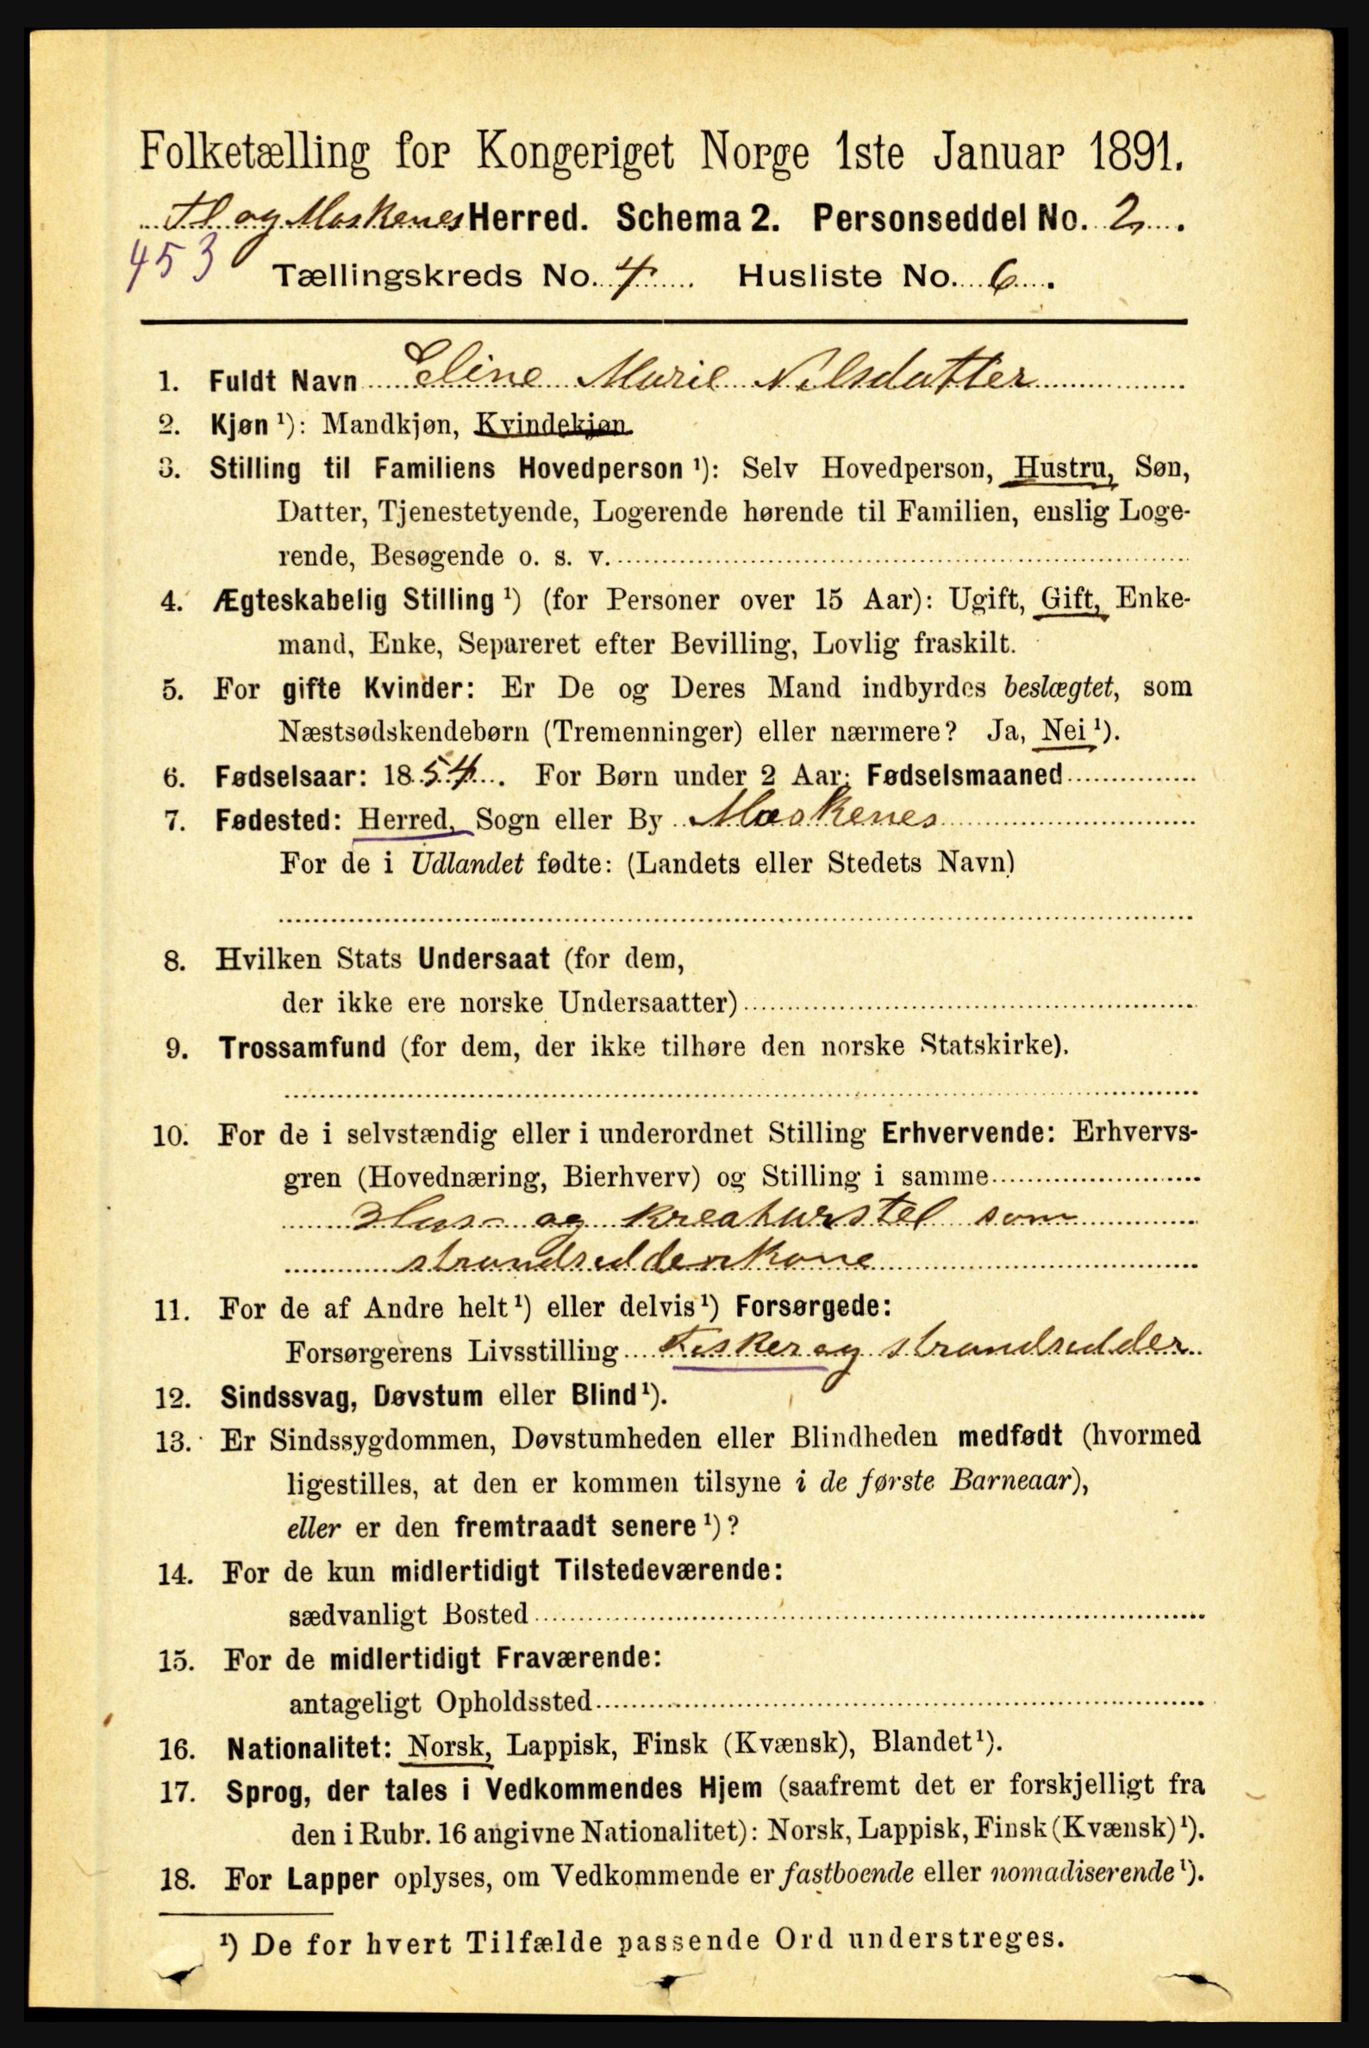 Folketælling for Kongeriget Norge 1ste Januar 1891.
Fl og Moskenes Herred. Schema 2. Personseddel No. 2.
453
Tællingskreds No. 4 Husliste No. 6.
1. Fuldt Navn Eline Marie Nilsdatter
2. Kjøn ¹): Mandkjøn, Kvindekjøn
3. Stilling til Familiens Hovedperson ¹): Selv Hovedperson, Hustru, Søn,
Datter, Tjenestetyende, Logerende hørende til Familien, enslig Loge-
rende, Besøgende o. s. v.
4. Ægteskabelig Stilling ¹) (for Personer over 15 Aar): Ugift, Gift, Enke-
mand, Enke, Separeret efter Bevilling, Lovlig fraskilt.
5. For gifte Kvinder: Er De og Deres Mand indbyrdes beslægtet, som
Næstsødskendebørn (Tremenninger) eller nærmere? Ja, Nei ¹).
6. Fødselsaar: 1854. For Børn under 2 Aar: Fødselsmaaned
7. Fødested: Herred, Sogn eller By Moskenes
For de i Udlandet fødte: (Landets eller Stedets Navn)
8. Hvilken Stats Undersaat (for dem,
der ikke ere norske Undersaatter)
9. Trossamfund (for dem, der ikke tilhøre den norske Statskirke).
10. For de i selvstændig eller i underordnet Stilling Erhvervende: Erhvervs-
gren (Hovednæring, Bierhverv) og Stilling i samme
Hus- og kreaturstel som
strandsidderkone
11. For de af Andre helt ¹) eller delvis ¹) Forsørgede:
Forsørgerens Livsstilling Fisker og strandsidder
12. Sindssvag, Døvstum eller Blind ¹).
13. Er Sindssygdommen, Døvstumheden eller Blindheden medfødt (hvormed
ligestilles, at den er kommen tilsyne i de første Barneaar),
eller er den fremtraadt senere ¹)?
14. For de kun midlertidigt Tilstedeværende:
sædvanligt Bosted
15. For de midlertidigt Fraværende:
antageligt Opholdssted
16. Nationalitet: Norsk, Lappisk, Finsk (Kvænsk), Blandet ¹).
17. Sprog, der tales i Vedkommendes Hjem (saafremt det er forskjelligt fra
den i Rubr. 16 angivne Nationalitet): Norsk, Lappisk, Finsk (Kvænsk) ¹).
18. For Lapper oplyses, om Vedkommende er fastboende eller nomadiserende ¹).
¹) De for hvert Tilfælde passende Ord understreges.